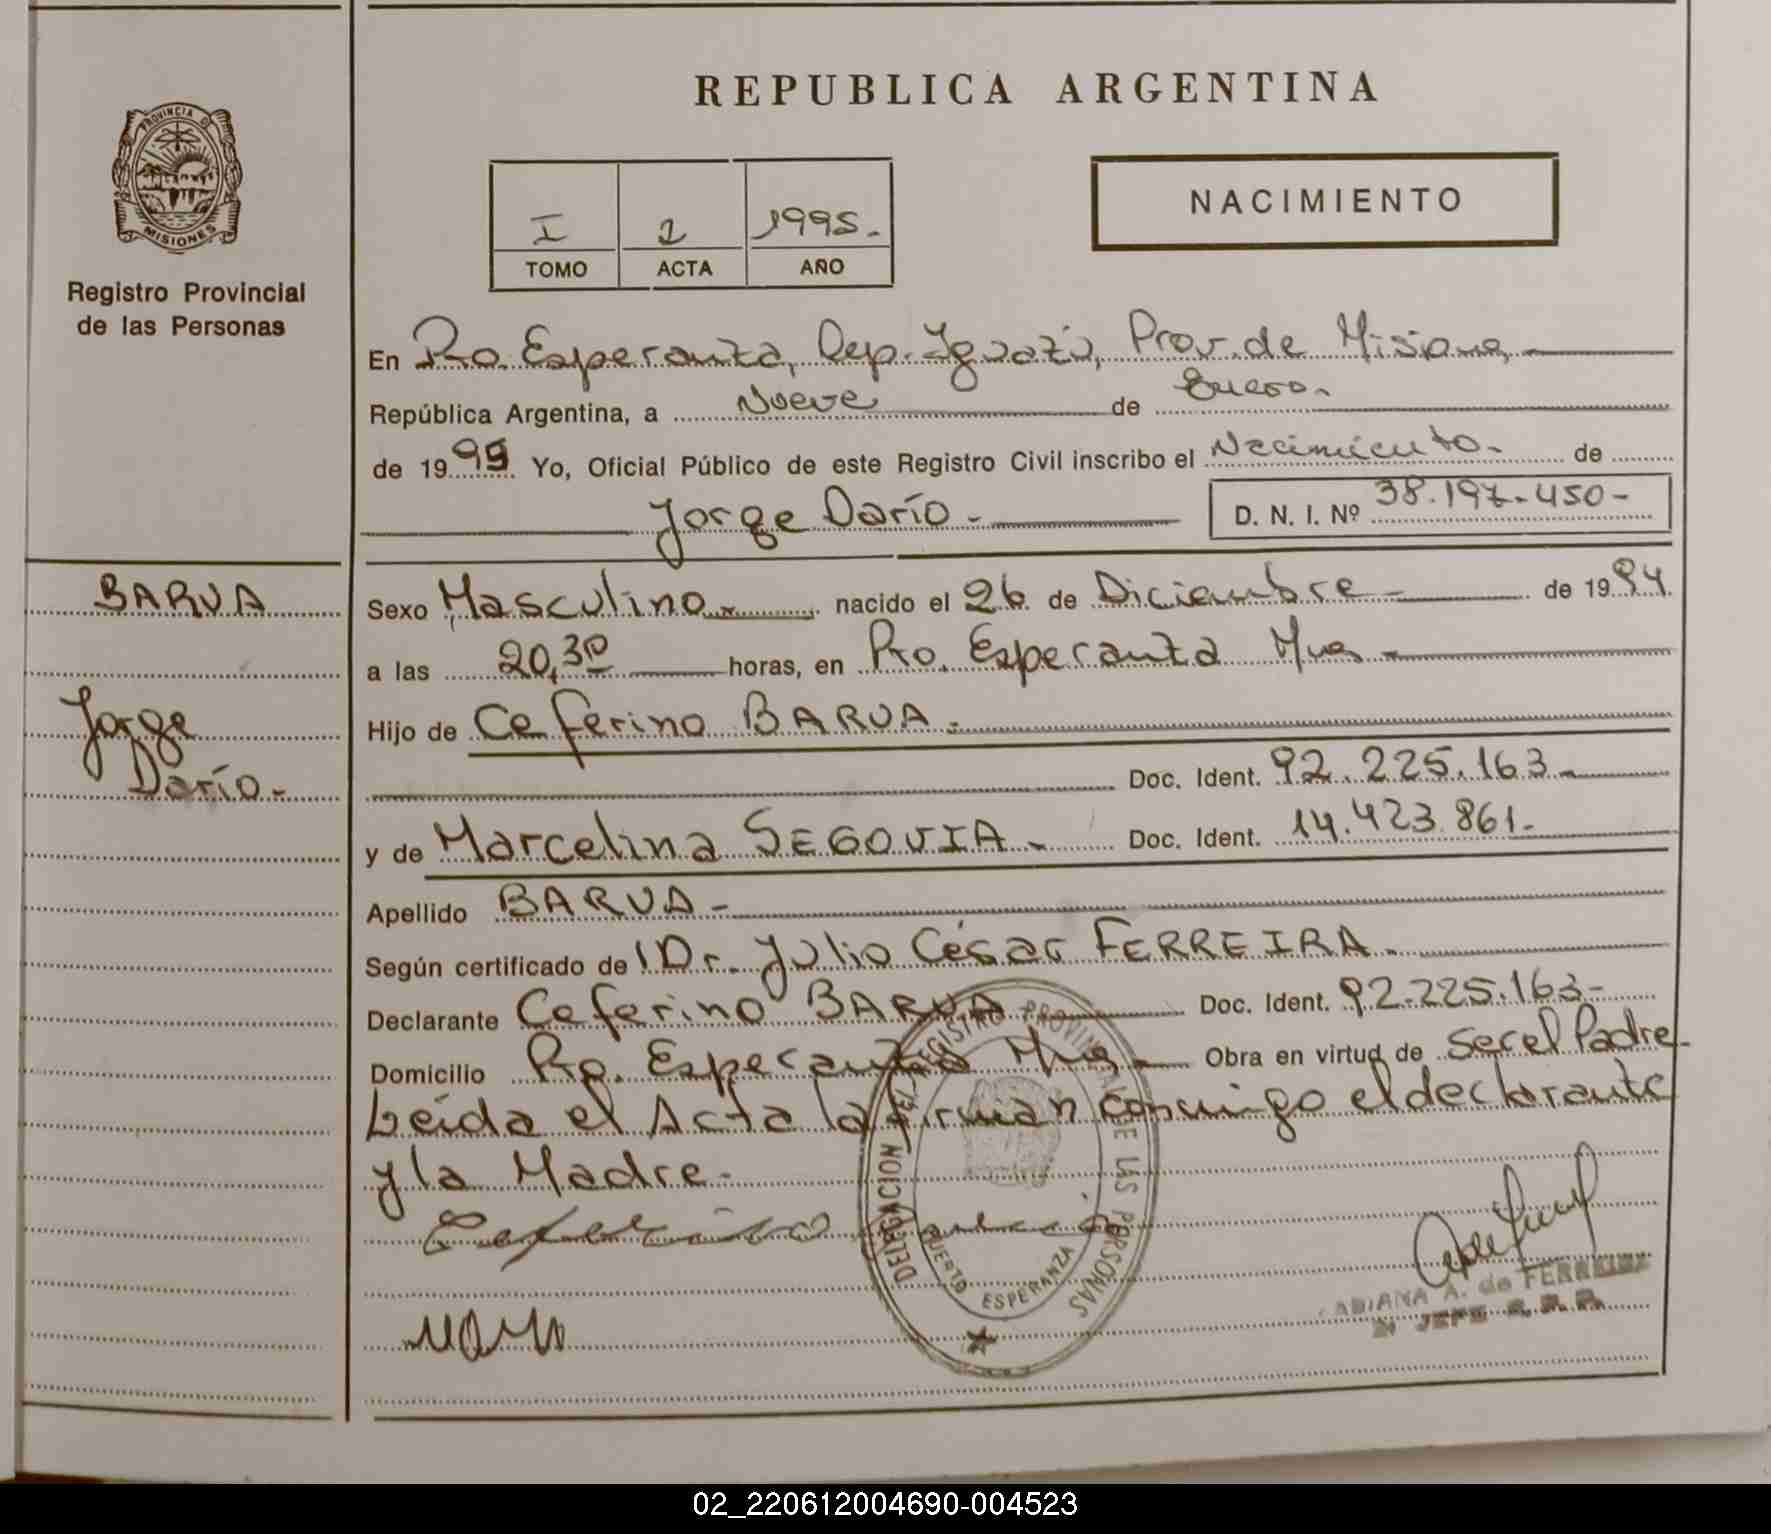 REPUBLICA ARGENTINA
PROVINCIA DE
MISIONES
Registro Provincial
de las Personas
I 2 1995.-
TOMO ACTA AÑO
NACIMIENTO
En Pto. Esperanza, Dep. Iguazú, Prov. de Misiones,
República Argentina, a Nueve de Enero.-
de 1995 Yo, Oficial Público de este Registro Civil inscribo el Nacimiento.- de
Jorge Darío.- D. N. I. Nº 38.197.450-
BARUA
Jorge
Darío.-
Sexo Masculino.- nacido el 26 de Diciembre- de 1994
a las 20,30 horas, en Pto. Esperanza Mnes-
Hijo de Ceferino BARUA.-
Doc. Ident. 92.225.163-
y de Marcelina SEGOVIA.- Doc. Ident. 14.423.861-
Apellido BARUA-
Según certificado de Dr. Julio César FERREIRA.
Declarante Ceferino BARUA Doc. Ident. 92.225.163-
Domicilio Pto. Esperanza Mnes- Obra en virtud de Ser el Padre-
Leida el Acta la firman conmigo el declarante
y la Madre.-
Ceferino Barua
DELEGACION DEL REGISTRO PROVINCIAL DE LAS PERSONAS
PUERTO ESPERANZA
A. de FERREIRA
JEFE R. P. P.
02_220612004690-004523